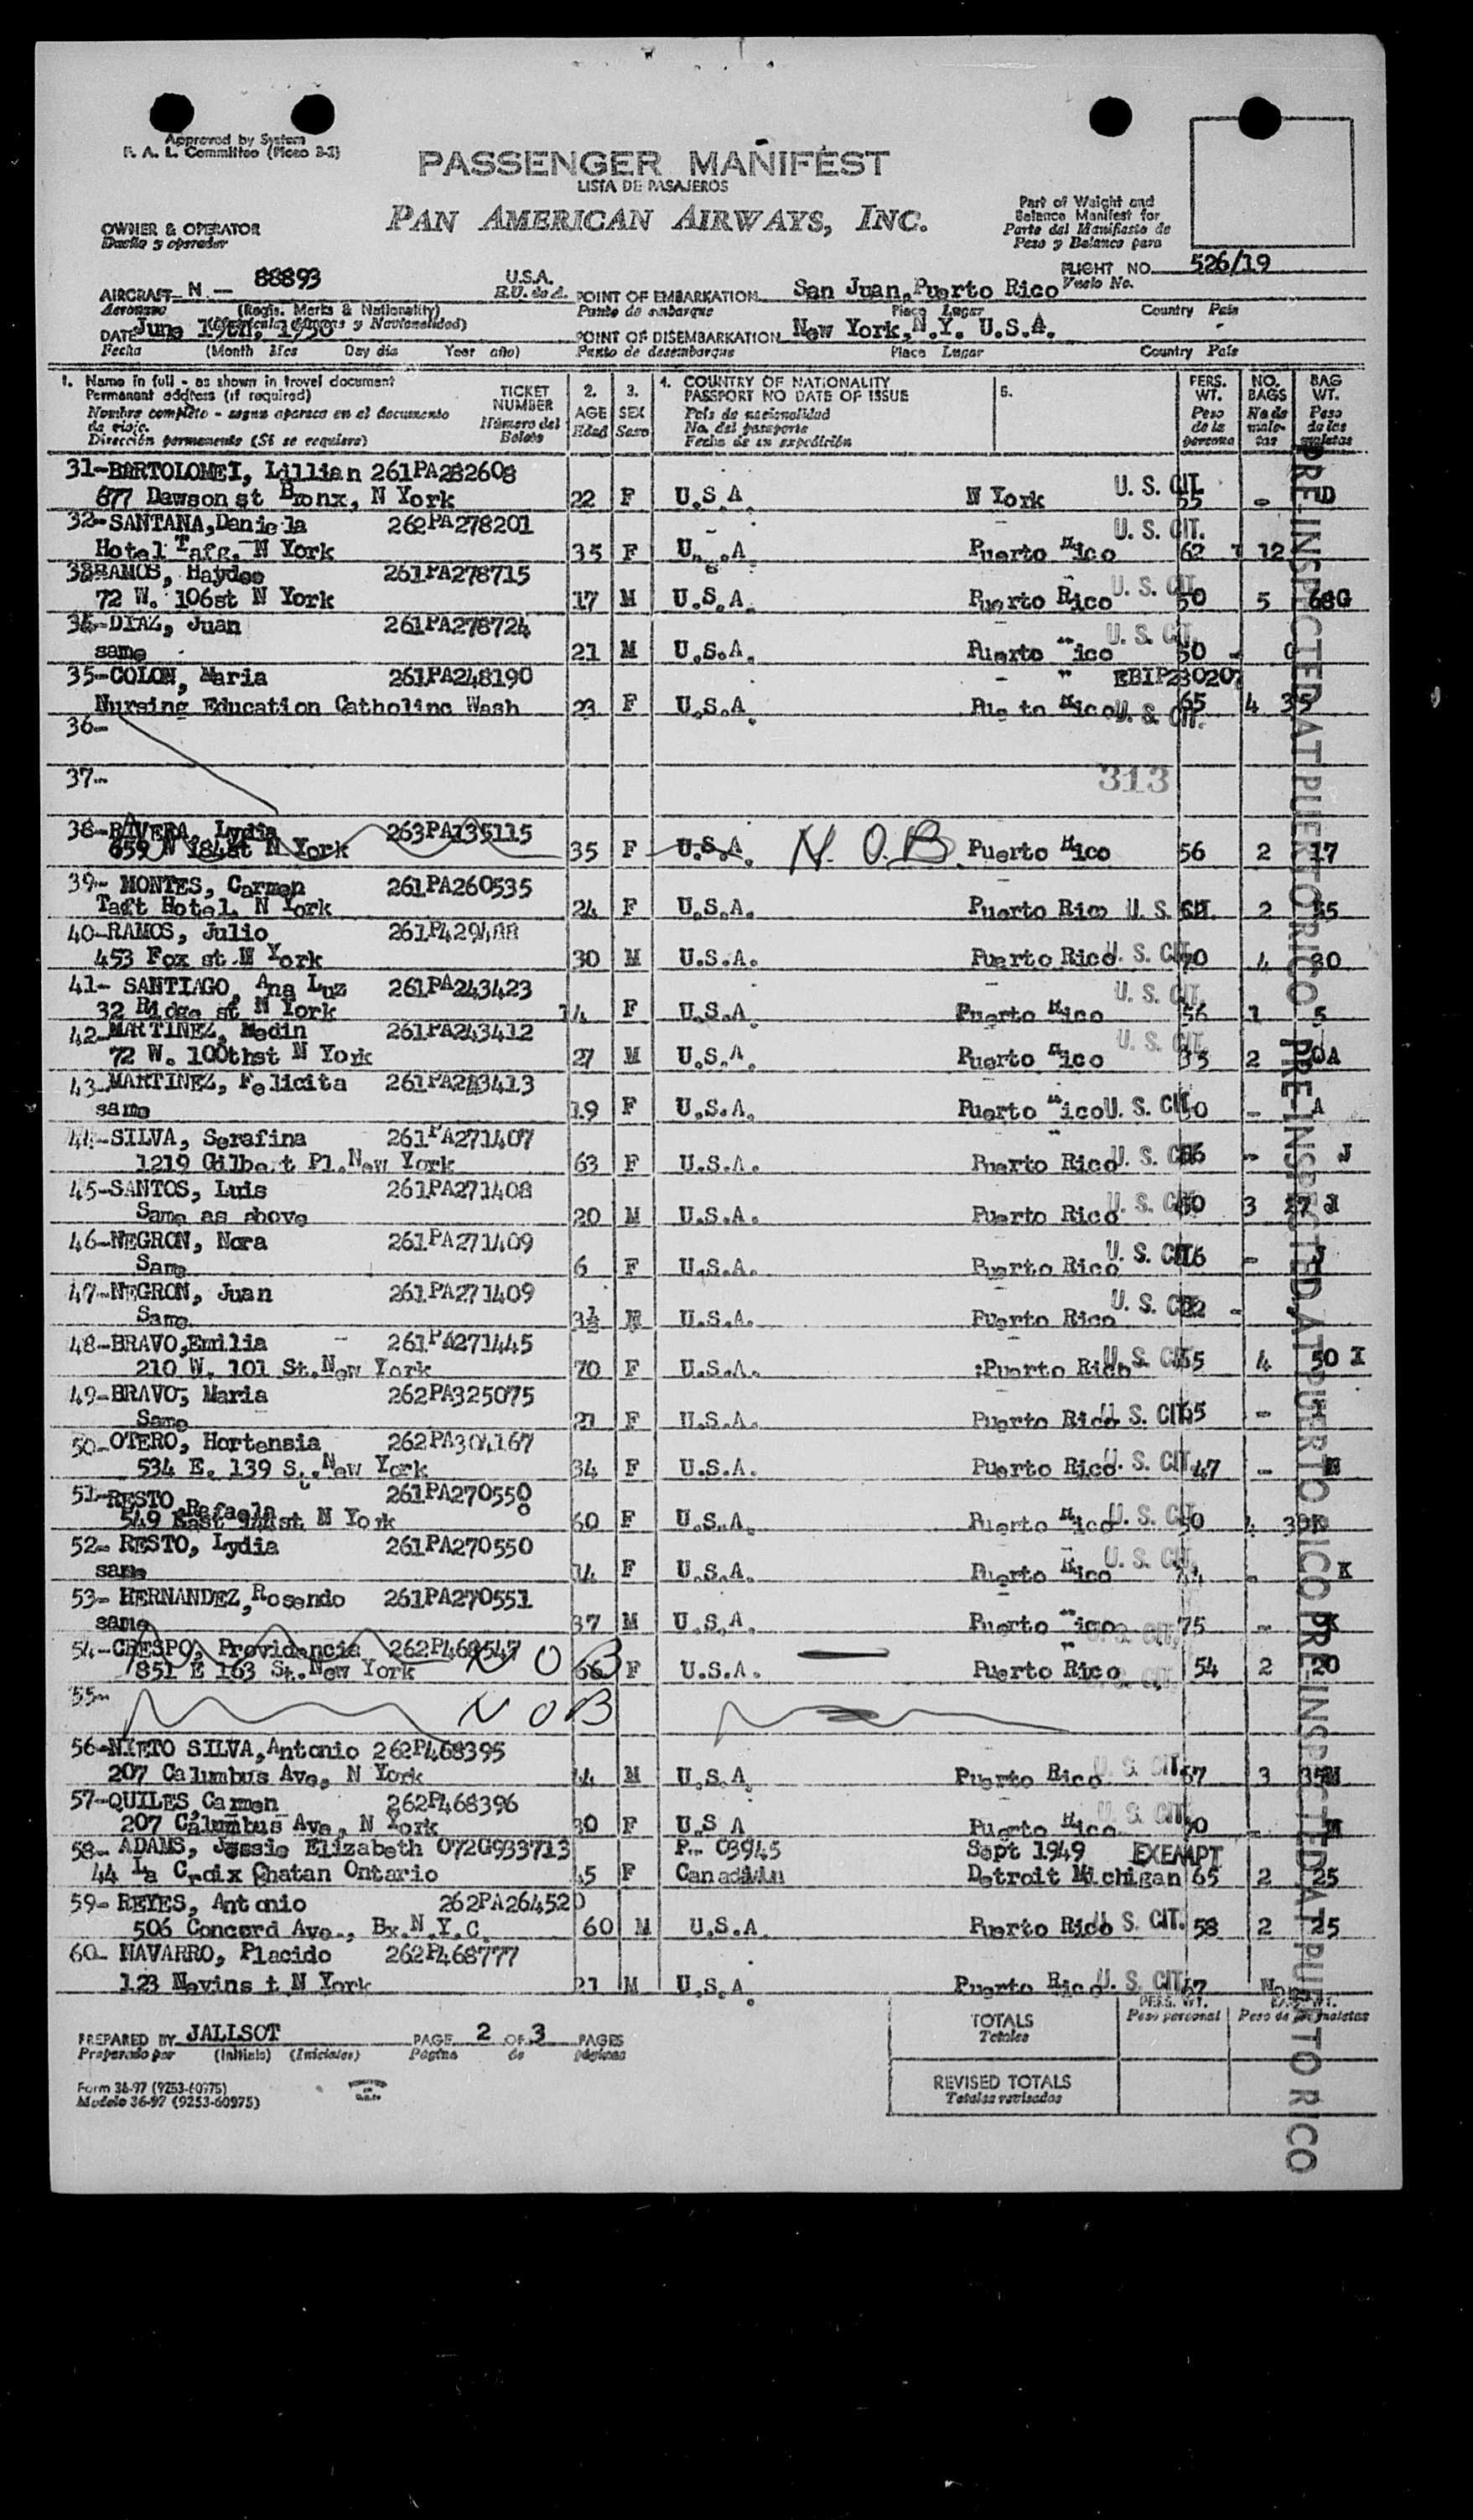 Approved by System
F. A. L. Committee (Mexo 3-2)
PASSENGER MANIFEST
LISTA DE PASAJEROS
PAN AMERICAN AIRWAYS, INC.
OWNER & OPERATOR
Dueño y operador
Part of Weight and
Balance Manifest for
Parte del Manifiesto de
Peso y Balance para
FLIGHT NO. 526/19
Vuelo No.
AIRCRAFT N - 88893 U.S.A.
Aeronave (Regis. Marks & Nationality) E.U. de A.
POINT OF EMBARKATION San Juan, Puerto Rico
Punto de embarque Place Lugar Country País
DATE June 19th, 1950
Fecha (Month Mes Day día Year año)
POINT OF DISEMBARKATION New York, N.Y. U.S.A.
Punto de desembarque Place Lugar Country País
1. Name in full - as shown in travel document
Permanent address (if required)
Nombre completo - segun aparece en el documento
de viaje.
Dirección permanente (Si se requiere)
TICKET
NUMBER
Número del
Boleto
2.
AGE
Edad
3.
SEX
Sexo
4. COUNTRY OF NATIONALITY
PASSPORT NO DATE OF ISSUE
País de nacionalidad
No. del pasaporte
Fecha de su expedición
5.
PERS.
WT.
Peso
de la
persona
NO.
BAGS
No de
male-
tas
BAG
WT.
Peso
de las
maletas
31-BARTOLOMEI, Lillian 261PA282608
877 Dawson st Bronx, N York 22 F U.S.A. N York U. S. CIT. 55 - D
32-SANTANA, Daniela 262PA278201
Hotel Tafg. N York 35 F U. .A Puerto Rico U. S. CIT. 62 1 12
RAMOS, Haydee 261PA278715
72 W. 106st N York 17 M U.S.A. Puerto Rico U. S. CIT. 50 5 68G
34-DIAZ, Juan 261PA278724
same 21 M U.S.A. Puerto Rico U. S. CIT. 50 - G
35-COLON, Maria 261PA248190 EBIP230207
Nursing Education Catholinc Wash 23 F U.S.A. Pue to Rico U. S. CIT. 65 4 35
36-
37- 313
38-RIVERA, Lydia 263PA135115
659 N 184st N York 35 F U.S.A. N. O. B. Puerto Rico 56 2 17
39- MONTES, Carmen 261PA260535
Taft Hotel. N York 24 F U.S.A. Puerto Rico U. S. CIT. 2 55
40-RAMOS, Julio 261P429488
453 Fox st. N York 30 M U.S.A. Puerto Rico U. S. CIT. 70 4 80
41- SANTIAGO, Ana Luz 261PA243423
32 Ridge st N York 14 F U.S.A. Puerto Rico U. S. CIT. 56 1 5
42-MARTINEZ, Medin 261PA243412
72 W. 100thst N York 27 M U.S.A. Puerto Rico U. S. CIT. 2 0A
43-MARTINEZ, Felicita 261PA243413
same 19 F U.S.A. Puerto Rico U. S. CIT. 50 - A
44-SILVA, Serafina 261PA271407
1219 Gilbert Pl. New York 63 F U.S.A. Puerto Rico U. S. CIT. - J
45-SANTOS, Luis 261PA271408
Same as above 20 M U.S.A. Puerto Rico U. S. CIT. 3 27 J
46-NEGRON, Nora 261PA271409
Same 6 F U.S.A. Puerto Rico U. S. CIT. - J
47-NEGRON, Juan 261PA271409
Same 3½ M U.S.A. Puerto Rico U. S. CIT. -
48-BRAVO, Emilia 261PA271445
210 W. 101 St. New York 70 F U.S.A. :Puerto Rico U. S. CIT. 4 50 I
49-BRAVO, Maria 262PA325075
Same 21 F U.S.A. Puerto Rico U. S. CIT. -
50-OTERO, Hortensia 262PA304167
534 E. 139 St. New York 34 F U.S.A. Puerto Rico U. S. CIT. 47 -
51-RESTO Rafaela 261PA270550
549 East st N York 60 F U.S.A. Puerto Rico U. S. CIT. 50 4 39K
52- RESTO, Lydia 261PA270550
same 14 F U.S.A. Puerto Rico U. S. CIT. - K
53- HERNANDEZ, Rosendo 261PA270551
same 37 M U.S.A. Puerto Rico U. S. CIT. 75 - K
54-CRESPO, Providencia 262P468547 N O B
851 E 163 St. New York 66 F U.S.A. Puerto Rico U. S. CIT. 54 2 20
55- N O B
56-NIETO SILVA, Antonio 262P468395
207 Calumbus Ave, N York 44 M U.S.A. Puerto Rico U. S. CIT. 67 3 35M
57-QUILES, Carmen 262P468396
207 Calumbus Ave, N York 30 F U.S A Puerto Rico U. S. CIT. 50 - M
58- ADAMS, Jessie Elizabeth 072G933713 P.- C3945 Sept 1949 EXEMPT
44 La Croix Chatan Ontario 45 F Canadian Detroit Michigan 65 2 25
59- REYES, Antonio 262PA264520
506 Concord Ave., Bx. N.Y.C. 60 M U.S.A. Puerto Rico U. S. CIT. 58 2 25
60- NAVARRO, Placido 262P468777
123 Nevins t N York 21 M U.S.A. Puerto Rico U. S. CIT. 67
PRE-INSPECTED AT PUERTO RICO
PRE-INSPECTED AT PUERTO RICO
PRE-INSPECTED AT PUERTO RICO
PREPARED BY JALLSOT
Preparado por (Initials) (Iniciales)
PAGE 2 OF 3 PAGES
Página de páginas
TOTALS
Totales
PERS. WT.
Peso personal
Peso de maletas
REVISED TOTALS
Totales revisados
Form 36-97 (9253-60975)
Modelo 36-97 (9253-60975)